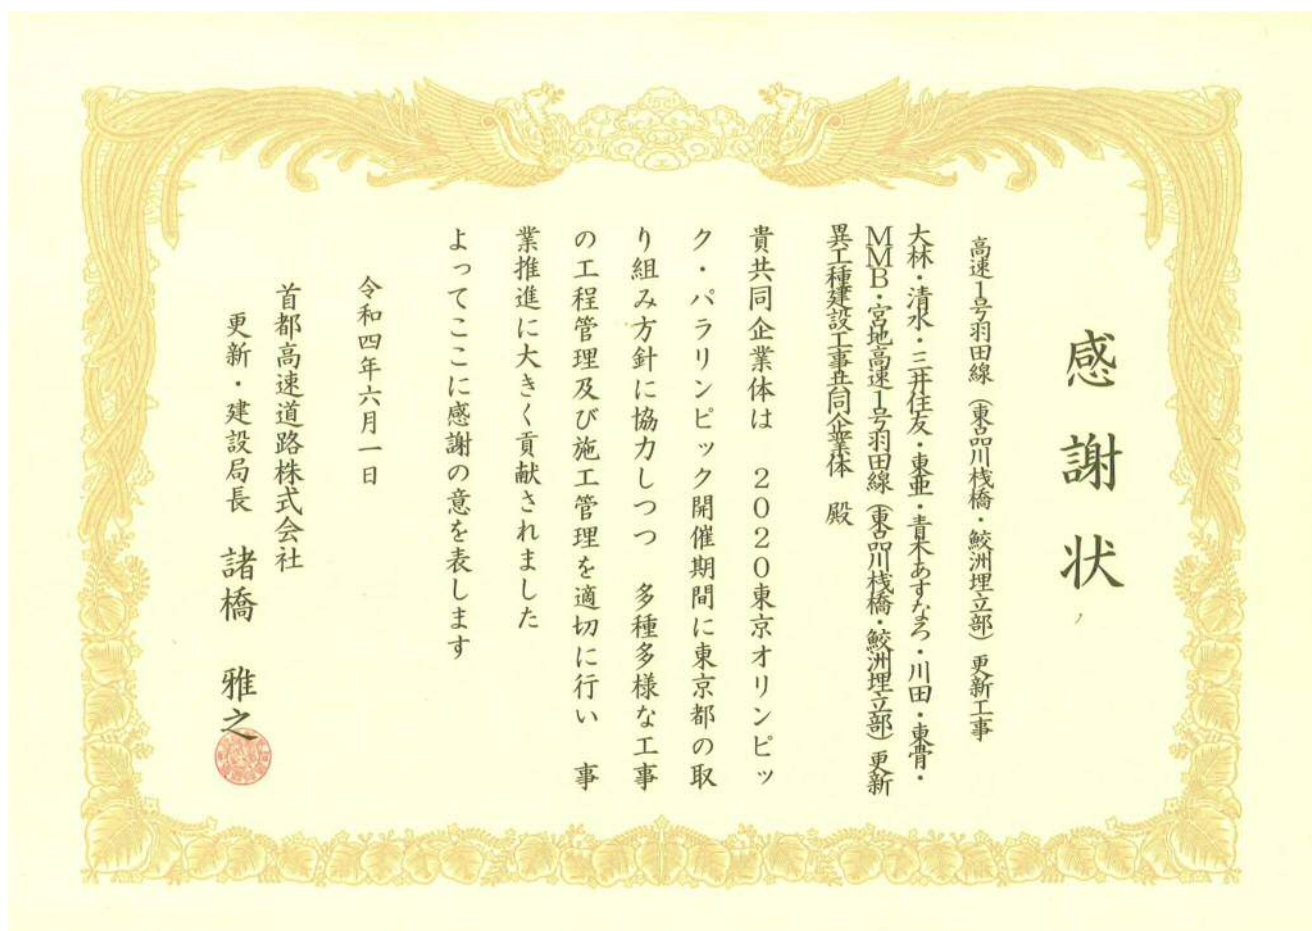 感謝状
高速1号羽田線（東品川桟橋・鮫洲埋立部）更新工事
大林・清水・三井住友・東亜・青木あすなろ・川田・東骨・
MMB・宮地高速1号羽田線（東品川桟橋・鮫洲埋立部）更新
異工種建設工事共同企業体　殿
貴共同企業体は　2020東京オリンピッ
ク・パラリンピック開催期間に東京都の取
り組み方針に協力しつつ　多種多様な工事
の工程管理及び施工管理を適切に行い　事
業推進に大きく貢献されました
よってここに感謝の意を表します
令和四年六月一日
首都高速道路株式会社
更新・建設局長　諸橋　雅之